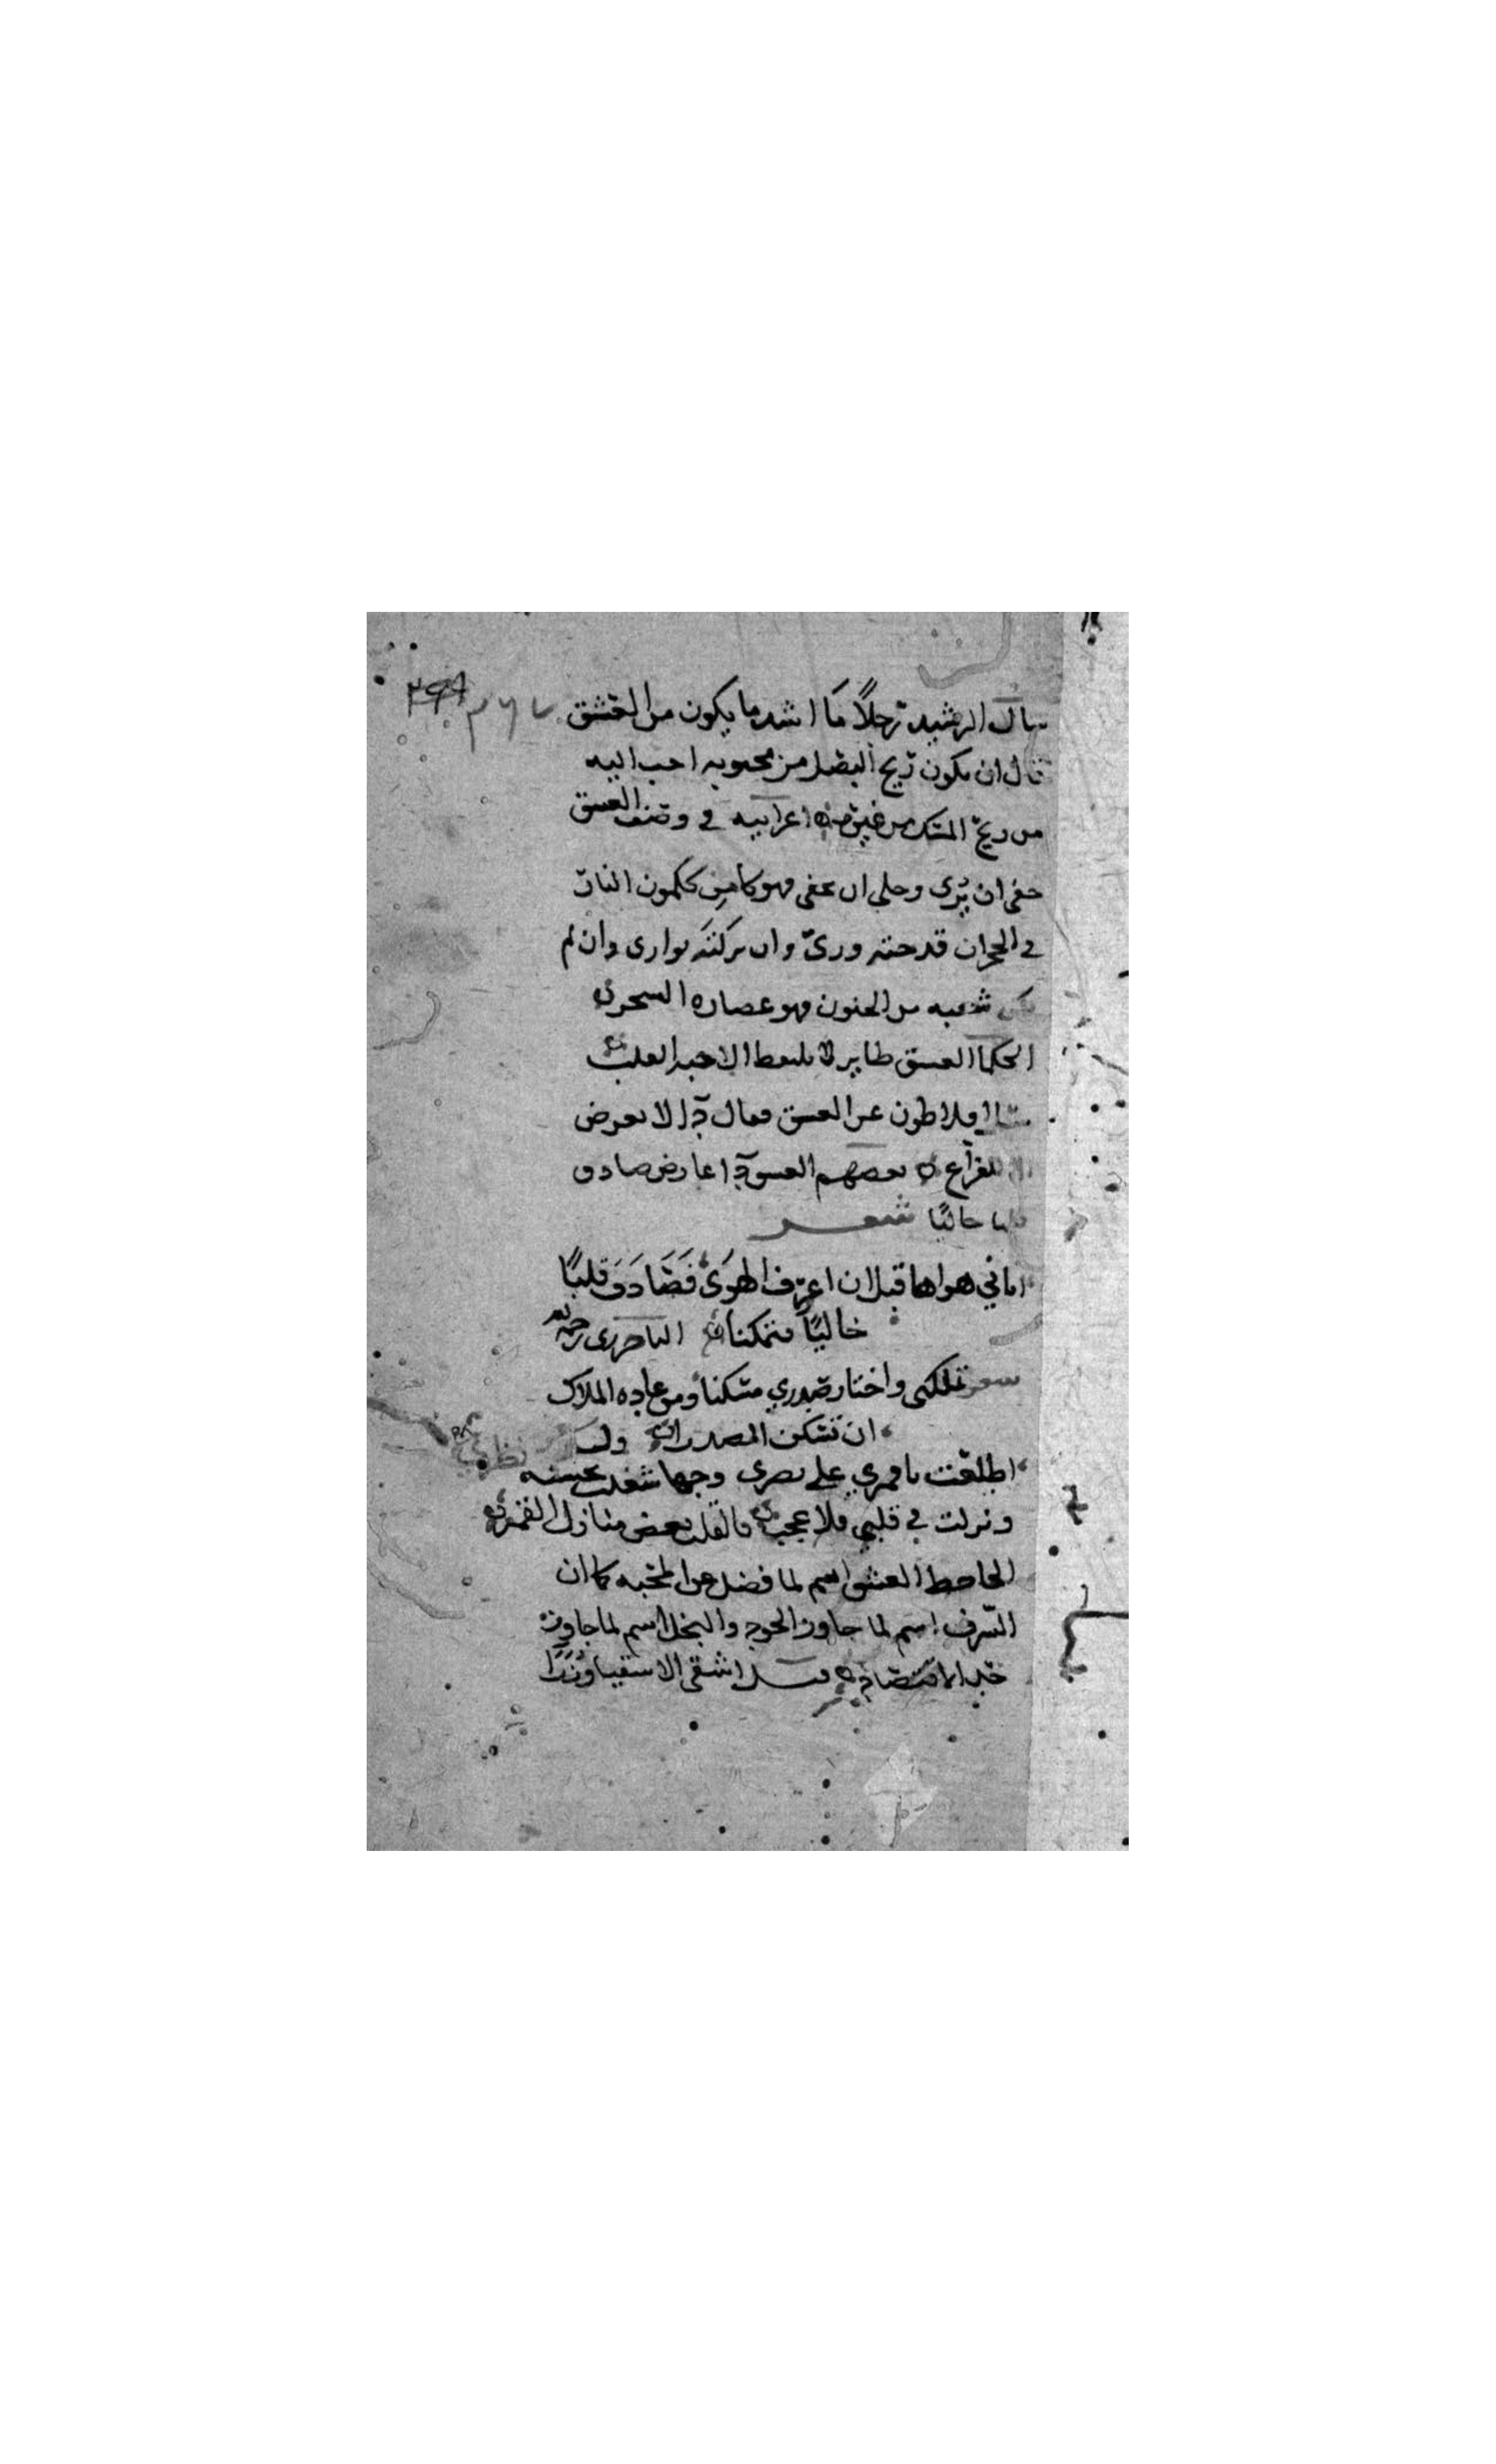 سال الرشيد رجلاً ما اشد ما يكون من العشق
قال ان يكون ريح البصل من محبوبه احب اليه
من ريح المسك من غيره اعرابيه في وصف العشق
خفي ان يُرى وجلي ان يخفى فهو كامن ككمون النار
في الحجر ان قدحته ورى وان تركته توارى وان لم
يكن شعبه من الجنون فهو عصاره السحر
الحكما العشق طاير لا يلتقط الا حبه القلب
سئل افلاطون عن العشق فقال داء لا يعرض
الا للفراغ بعضهم العشق داء عارض صادف
قلبا خاليًا شعر
اتاني هواها قبل ان اعرف الهوى فَصَادَفَ قلبًا
خاليًا متمكنا الباخرزي رحمه
شعر تملكني واختار صدري مسكنا ومن عاده الملاك
ان تسكن الصدرا
اطلعت يا قمري على بصري وجها شغلت بحسنه نظري
ونزلت في قلبي فلا عجب فالقلب بعض منازل القمر
الجاحظ العشق اسم لما فضل عن المحبه كما ان
السرف اسم لما جاوز الجود والبخل اسم لما جاوز
حد الاقتصاد اشقى الاشقيا